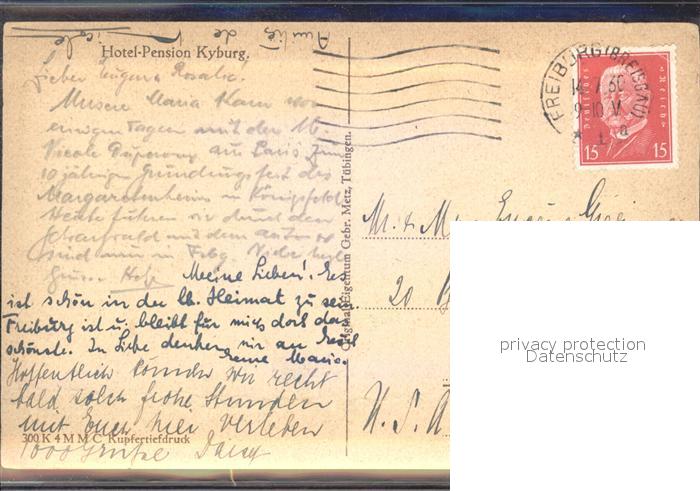 Amitiés de Nicole
Hotel-Pension Kyburg.
Lieber Eugen u. Rosalie.
Unsere Maria kam vor
einigen Tagen mit der M.
Nicole aus Paris zum
10 jährigen Gründungsfest des
Margaretenheim in Königsfeld
Heute führen wir durch den
Schwarzwald mit dem Auto u.
sind nun in Frbg. Viele herzl.
Grüsse
Meine Lieben! Es
ist schön in der lb. Heimat zu sein
Freiburg ist u. bleibt für mich doch das
schönste. In Liebe denken wir an Euch
Eure Maria.
Hoffentlich können wir recht
bald solch frohe Stunden
mit Euch hier verleben
1000 Grüsse Daisy
300 K 4 M M C Kupfertiefdruck
Original-Eigentum Gebr. Metz, Tübingen.
FREIBURG (BREISGAU)
9-10 V
a
15 15
M. & M. Eugen
20
U. S. A
privacy protection
Datenschutz